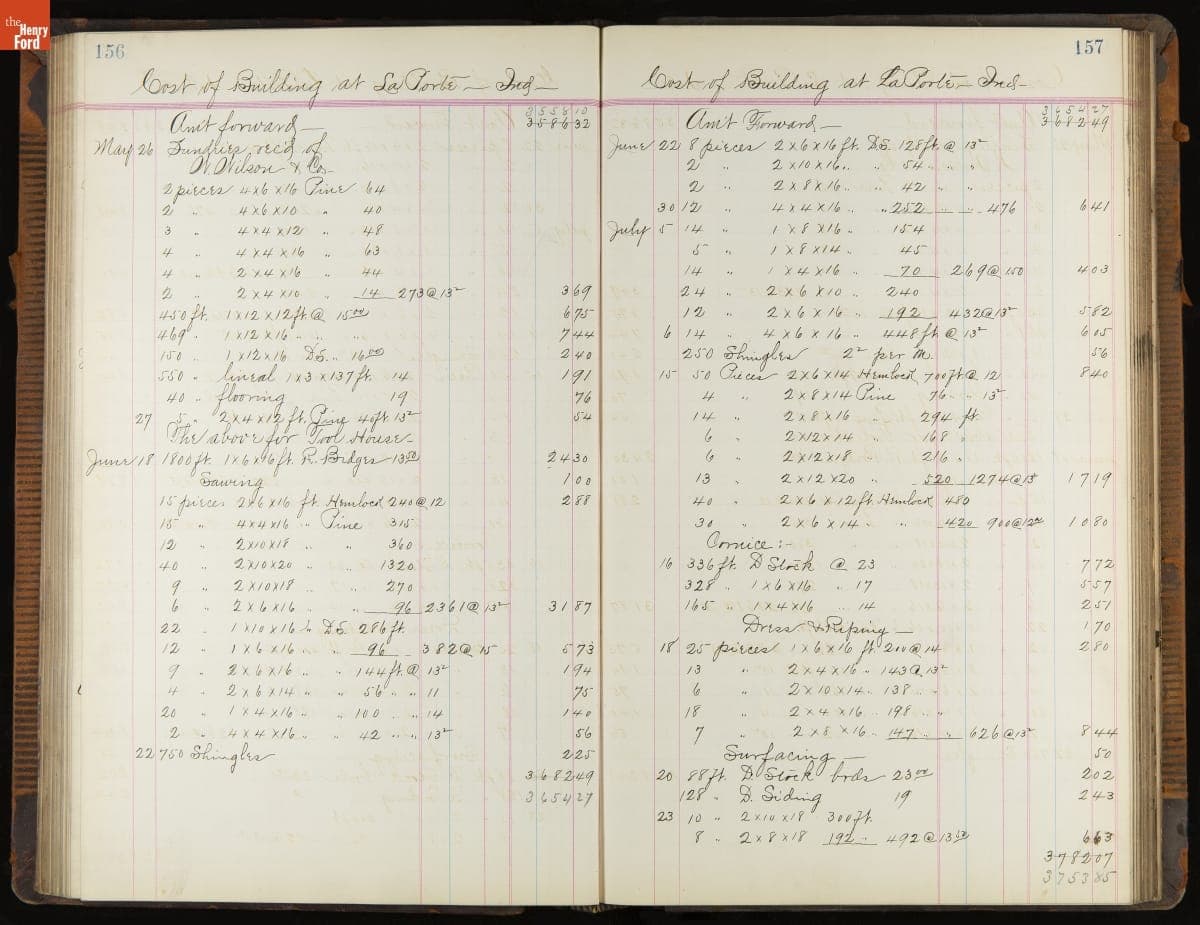 the
Henry
Ford
156
Cost of Building at LaPorte — Ind —
355810
Amt forward — 358632
May 26 Sundries rec'd of
W. Wilson & Co —
2 pieces 4x6x16 Pine 64
2 " 4x6x10 " 40
3 " 4x4x12 " 48
4 " 4x4x16 " 63
4 " 2x4x16 " 44
2 " 2x4x10 " 14 273@13 369
450 ft. 1x12x12 ft. @ 15 00 675
469 " 1x12x16 " " " 744
150 " 1x12x16 D.S. " 16 00 240
550 " lineal 1x3x137 ft. 14 191
40 " flooring 19 76
27 5 " 2x4x12 ft. Pine 40 ft. 13 54
The above for Tool House —
June 18 1800 ft. 1x6x16 ft. R. Bridges 13 50 2430
Sawing 100
15 pieces 2x6x16 ft. Hemlock 240@12 288
15 " 4x4x16 " Pine 315
12 " 2x10x18 " " 360
40 " 2x10x20 " " 1320
9 " 2x10x18 " " 270
6 " 2x6x16 " " 96 2361@13 3187
22 " 1x10x16 " D.S. 286 ft.
12 " 1x6x16 " " 96 382@15 573
9 " 2x6x16 " " 144 ft. @ 13 194
4 " 2x6x14 " " 56 " " 11 75
20 " 1x4x16 " " 100 " " 14 140
2 " 4x4x16 " " 42 " " 13 56
22 750 Shingles 225
368249
365427
157
Cost of Building at LaPorte — Ind —
365427
Amt Forward — 368249
June 22 8 pieces 2x6x16 ft. D.S. 128 ft. @ 13
2 " 2x10x16 " " 54 " " "
2 " 2x8x16 " " 42 " "
30 12 " 4x4x16 " " 252 " " 476 641
July 5 14 " 1x8x16 " 154
5 " 1x8x14 " 45
14 " 1x4x16 " 70 269@150 403
24 " 2x6x10 " 240
12 " 2x6x16 " 192 432@13 582
6 14 " 4x6x16 " 448 ft. @ 13 605
250 Shingles 2 per M. 56
15 50 Pieces 2x6x14 Hemlock 700 ft. @ 12 840
4 " 2x8x14 Pine 76 " " 13
14 " 2x8x16 " 294 ft.
6 " 2x12x14 " 168 "
6 " 2x12x18 " 216 "
13 " 2x12x20 " 520 1274@13 1719
40 " 2x6x12 ft. Hemlock 480
30 " 2x6x14 " " 420 900@12 1080
Cornice :-
16 336 ft. D Stock @ 23 772
328 " 1x6x16 " 17 557
165 " 1x4x16 " 14 251
Dress & Riping — 170
18 25 pieces 1x6x16 ft. 200@14 280
13 " 2x4x16 " 143@13
6 " 2x10x14 " 138 " "
18 " 2x4x16 " 198 " "
7 " 2x8x16 " 147 " " 626@13 844
Surfacing — 50
20 88 ft. D. Stock brds 23 00 202
128 " D. Siding 19 243
23 10 " 2x10x18 300 ft.
8 " 2x8x18 192 " 492@13 50 663
378207
375385